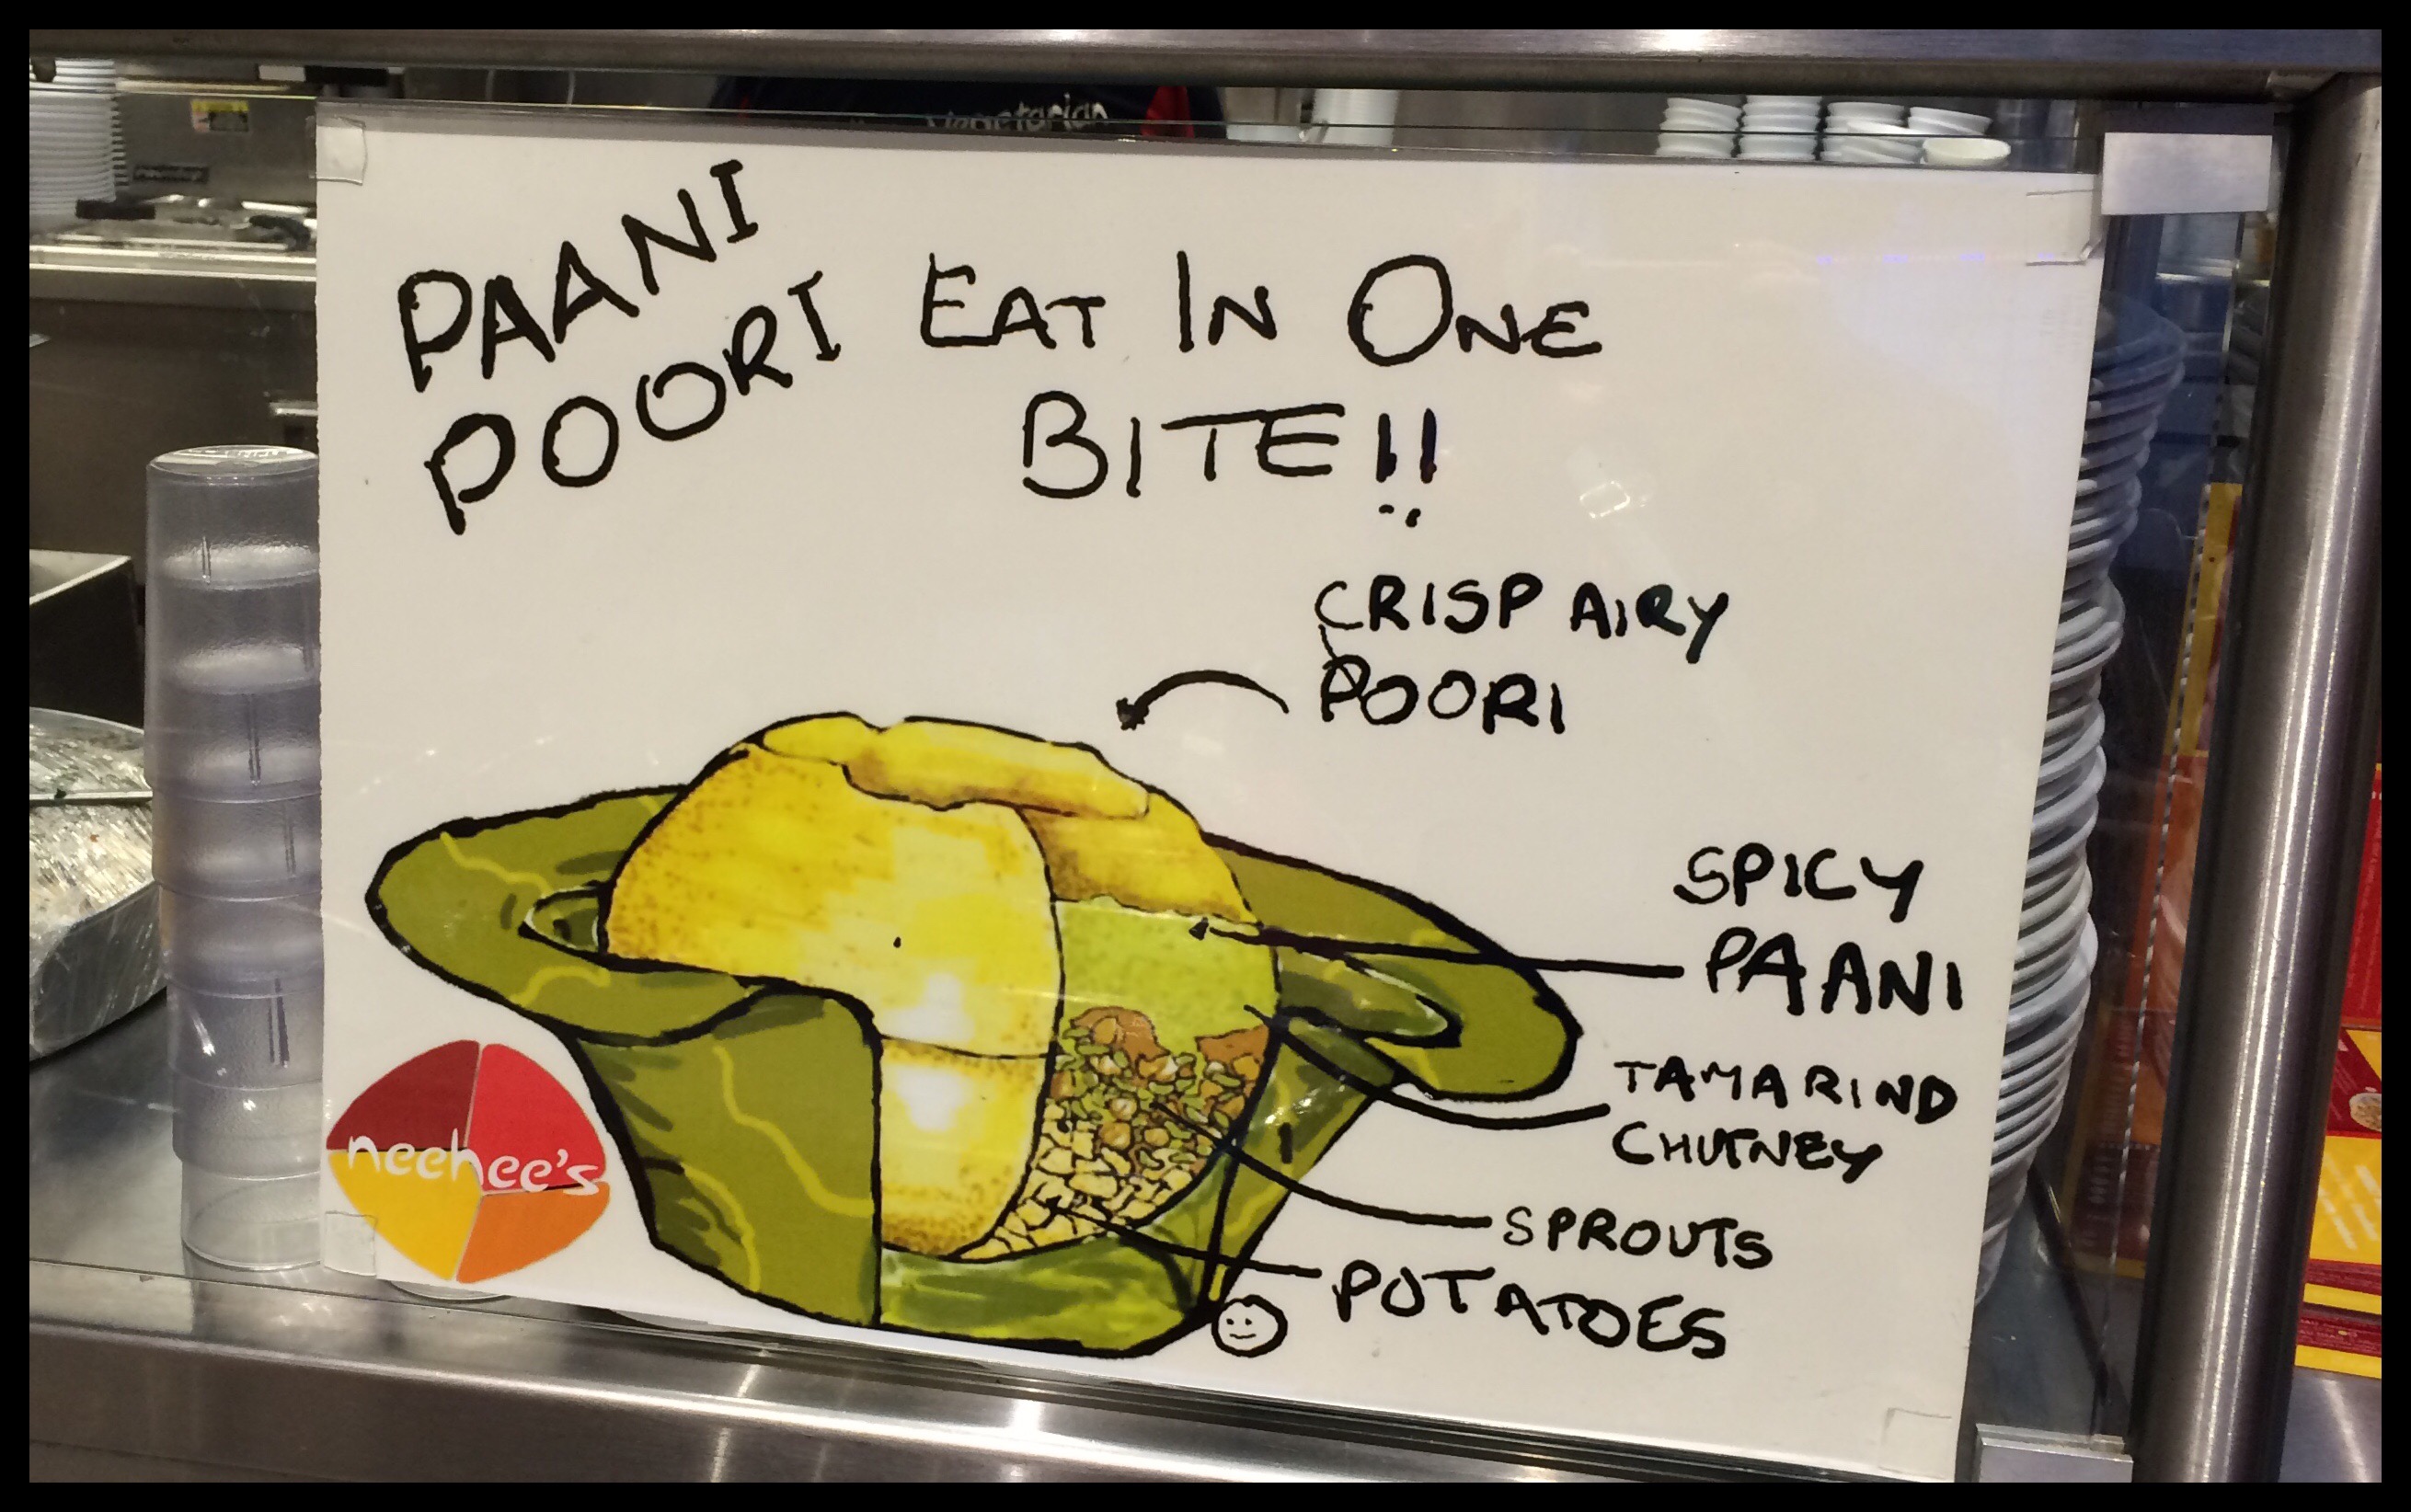 vegetarian
PAANI
POORI
EAT IN ONE
BITE!!
CRISP AIRY
POORI
SPICY
PAANI
TAMARIND
CHUTNEY
SPROUTS
POTATOES
neehee's